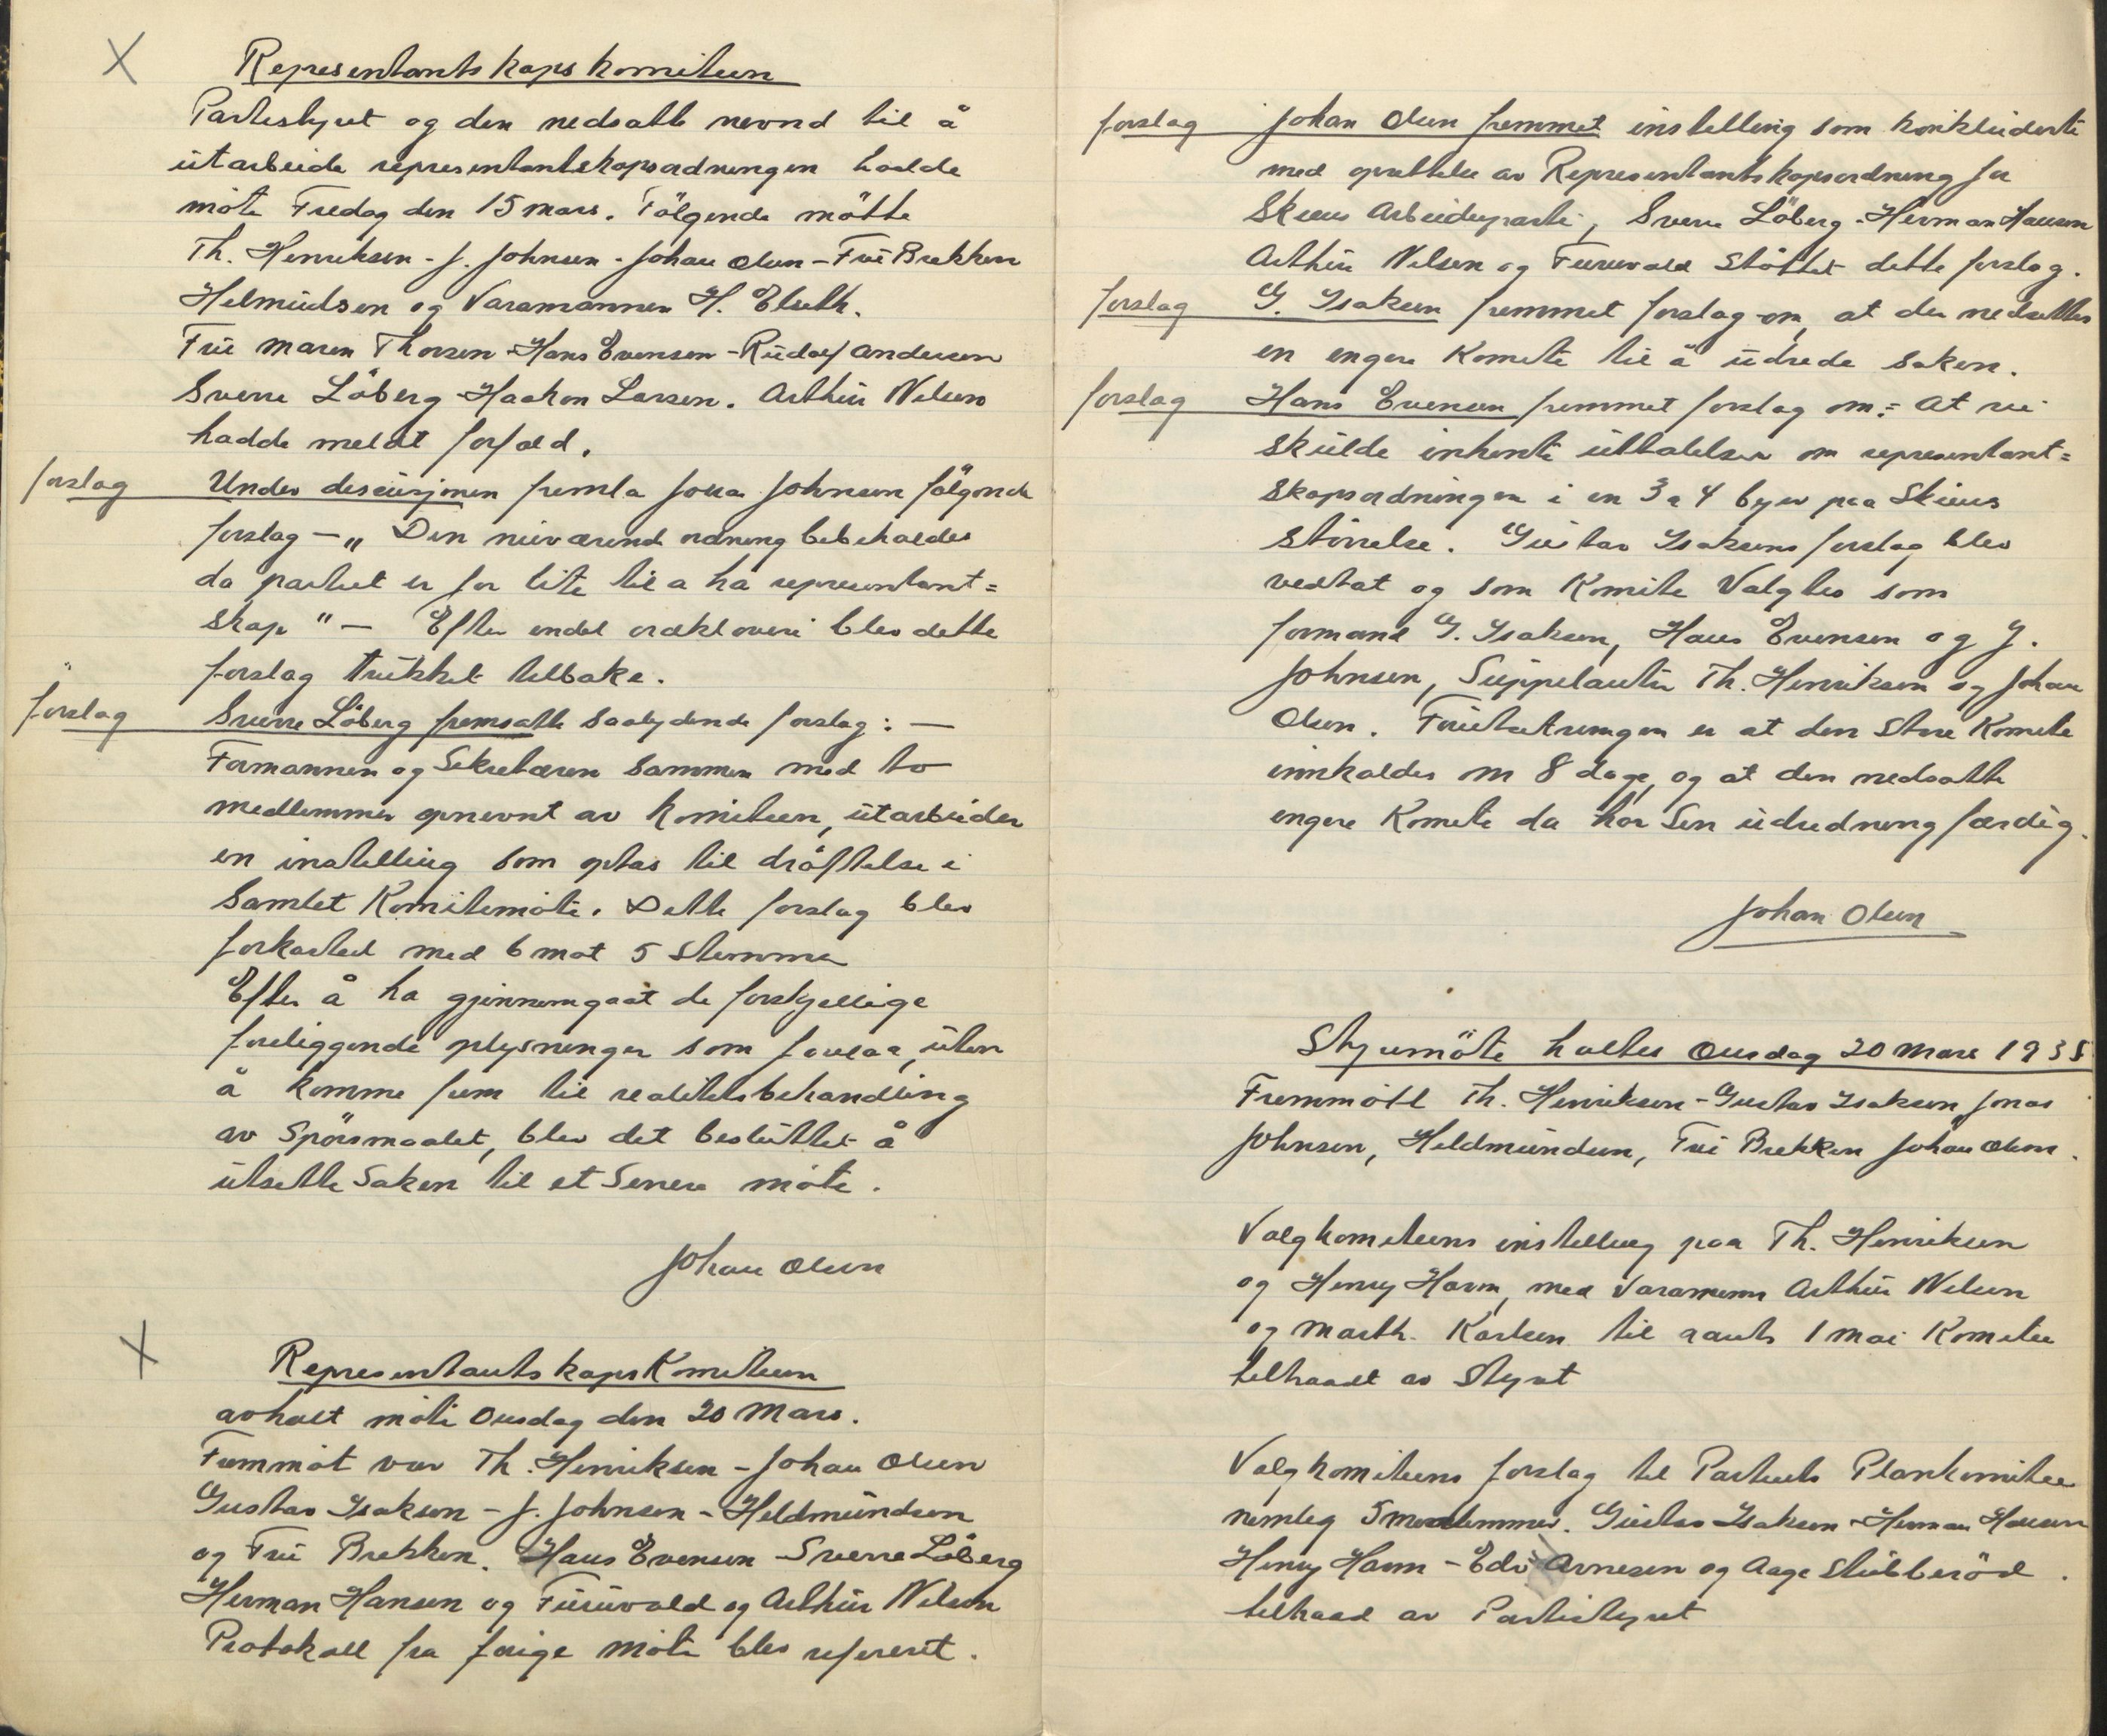 X
Representantskapskomiteen
Partistyret og den nedsatte nevnd til å
utarbeide representantskapsordningen hadde
möte Fredag den 15 mars. Følgende møtte
Th. Henriksen - J. Johnsen - Johan Olsen - Fru Brekken
Helmundsen og Varamannen H. Elseth.
Fru Maren Thorsen - Hans Evensen - Rudolf Andersen
Sverre Löberg - Haakon Larsen. Arthur Nilsen
hadde meldt forfald.
forslag Under discusjonen fremla Jonas Johnsen fölgende
forslag - „ Den nuværend ordning bebeholdes
da partiet er for lite til a ha representant=
skap " - Efter endel ordkloveri blev dette
forslag trukket tilbake.
forslag Sverre Löberg fremsatte saalydende forslag: -
Formannen og Sekretæren sammen med to
medlemmer opnevnt av komiteen, utarbeider
en instelling som optas til dröftelse i
samlet Komitemöte. Dette forslag blev
forkastet med 6 mot 5 stemmer
Efter å ha gjennemgaat de forskjellige
foreliggende oplysninger som forelaa, uten
å komme frem til realitetsbehandling
av Spörsmaalet, blev det besluttet å
utsette Saken til et Senere möte.
Johan Olsen
X
RepresentantskapsKomiteen
avholt möte Onsdag den 20 Mars.
Fremmöt var Th. Henriksen - Johan Olsen
Gustav Isaksen - J. Johnsen - Heldmundsen
og Fru Brekken. Hans Evensen - Sverre Löberg
Herman Hansen og Furuvald og Arthur Nilsen
Protokoll fra forige möte blev refereret.
forslag Johan Olsen fremmet instelling som konkluderte
med oprettelse av Representantskapsordning for
Skiens Arbeiderparti, Sverre Löberg - Herman Hansen
Arthur Nilsen og Furuvald Støttet dette forslag.
forslag G. Isaksen fremmet forslag om, at der nedsettes
en engere Komite til å udrede saken.
forslag Hans Evensen fremmet forslag om:= At vi
skulde inhente uttalelser om representant=
skapsordningen i en 3 a 4 byer paa Skiens
störrelse. Gustav Isaksens forslag blev
vedtat og som Komite Valgtes som
formand G. Isaksen, Hans Evensen og J.
Johnsen, Suppelanter Th. Henriksen og Johan
Olsen. Forutsetningen er at den Store Komite
innkaldes om 8 dage, og at den nedsatte
engere Komite da har Sin udredning færdig.
Johan Olsen
Styremöte holtes Onsdag 20 Mars 1935
Fremmött Th. Henriksen - Gustav Isaksen Jonas
Johnsen, Heldmundsen, Fru Brekken Johan Olsen.
Valgkomiteens instelling paa Th. Henriksen
og Henry Havm, med Varamenn Arthur Nilsen
og Marth. Karlsen til aarets 1 mai Komitee
tiltraadt av Styret
Valgkomiteens forslag til Partiets Plankomitee
nemlig 5 medlemmer. Gustav Isaksen - Herman Hansen
Henry Havm - Edv Arnesen og Aage Stubberöd.
tiltraad av Partistyret